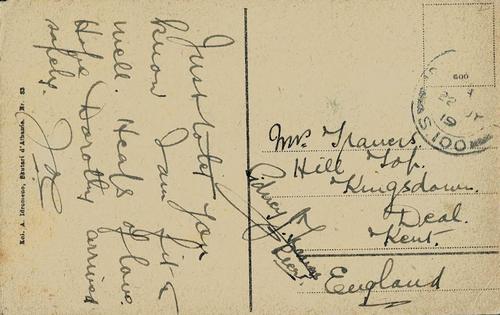 Just to let you
know I am fit &
well. Heaps of love.
Hope Dorothy arrived
safely.
Kol. A. Idromeno, Skutari d'Albanie. Nr. 53
600
22
19
Mrs Travers.
Hill Top.
Kingsdown.
Deal.
Kent.
England